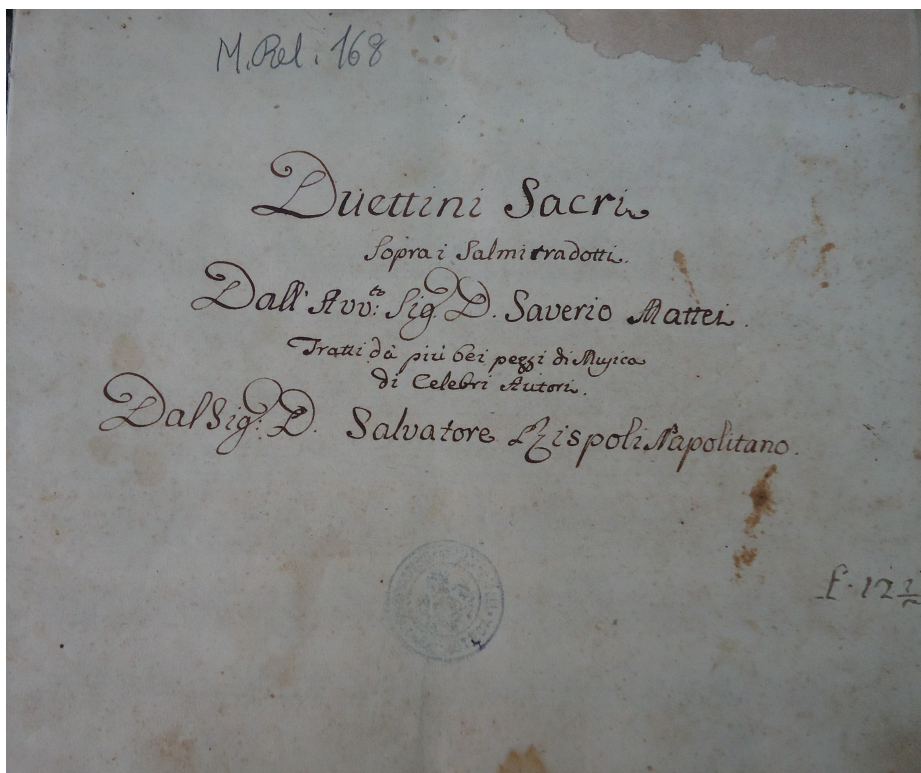 M. Rel. 168
Duettini Sacri
Sopra i Salmi tradotti.
Dall' Avv.to Sig.r D. Saverio Mattei.
Tratti da più bei pezzi di Musica
di Celebri Autori.
Dal Sig.r D. Salvatore Rispoli Napolitano.
f. 12